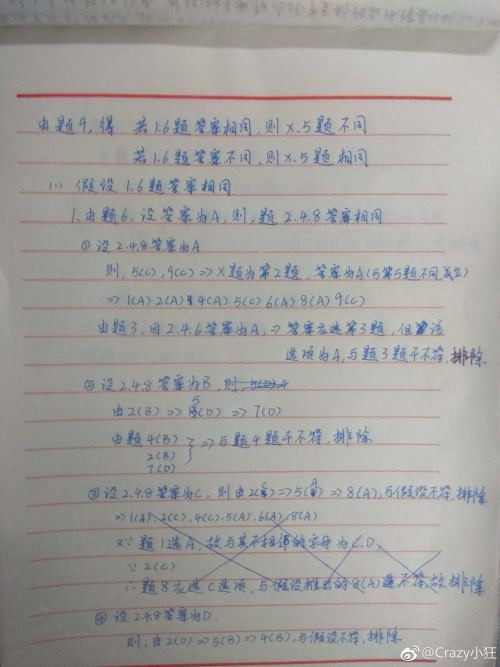 由题9,得 若1.6题答案相同,则X.5题不同
若1.6题答案不同,则X.5题相同
(1) 假设1.6题答案相同
1.由题6,设答案为A,则,题2.4.8答案相同
① 设2.4.8答案为A
则,5(C),9(C)=>X题为第2题,答案为A(与第5题不同,成立)
=>1(A)2(A)4(A)5(C)6(A)8(A)9(C)
由题3,因2.4.6答案为A,=>答案应选第3题,但该
选项为A,与题3题干不符,排除
② 设2.4.8答案为B,则,
由2(B)=>5(D)=>7(D)
由题4(B)
2(B)
7(D)
=>与题4题干不符,排除
③设2.4.8答案为C,则由2(C)=>5(A)=>8(A),与假设不符,排除
=>1(A).2(C).4(C).5(A).6(A)8(A)
又∵题1选A,故与其不相邻的字母为C.D,
∵2(C)
∴题8应选C选项,与假设推出的8(A)不符,故排除
④ 设2.4.8答案为D
则,由2(D)=>5(B)=>4(B),与假设不符,排除
@Crazy小狂